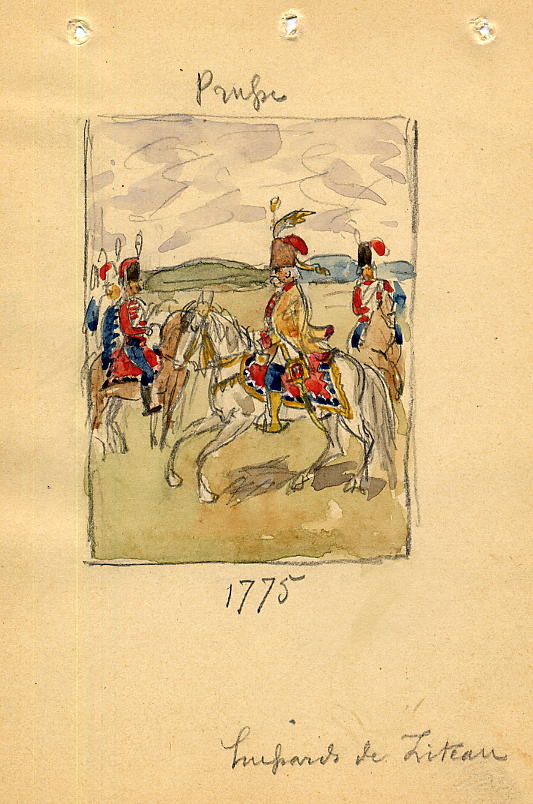 Prusse
1775
hussards de Ziteau